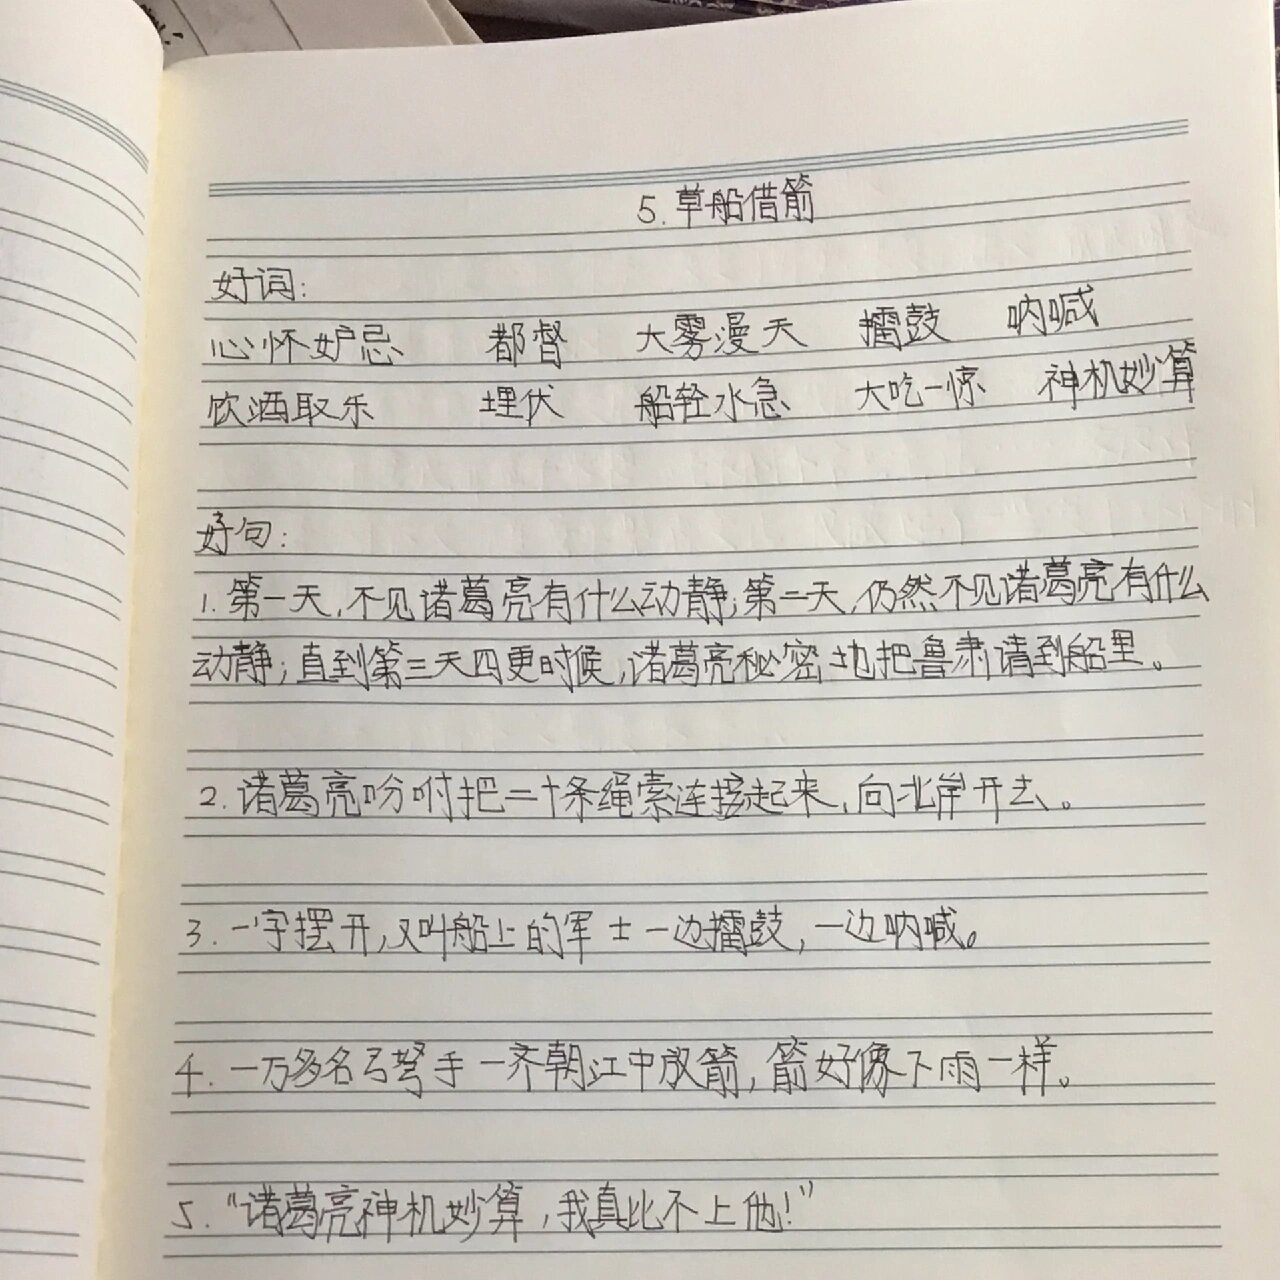 5.草船借箭
好词:
心怀妒忌 都督 大雾漫天 擂鼓 呐喊
饮酒取乐 埋伏 船轻水急 大吃一惊 神机妙算
好句:
1.第一天,不见诸葛亮有什么动静;第二天,仍然不见诸葛亮有什么
动静;直到第三天四更时候,诸葛亮秘密地把鲁肃请到船里。
2.诸葛亮吩咐把二十条绳索连接起来,向北岸开去。
3.一字摆开,又叫船上的军士一边擂鼓,一边呐喊。
4.一万多名弓弩手一齐朝江中放箭,箭好像下雨一样。
5.“诸葛亮神机妙算,我真比不上他!”